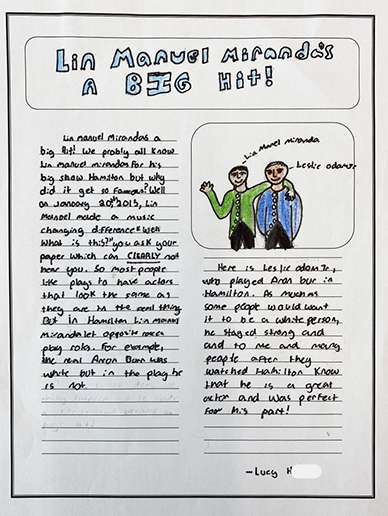 Lin Manuel Miranda's
A BIG Hit!
Lin manuel Mirandas a
big hit! We probly all know
Lin manuel miranda for his
big show Hamilton but why
did it get so
on January 20th 2015, Lin
Manoel made a music
changing difference "Well
What is this?" you ask your
paper which can CLEARLY not
hear you. So most people
like plays to have actors
that look the same as
they are in the real thing.
But in Hamilton Lin manuel
Miranda let opposite races
play roles. For example,
the real Aaron Burr was
white but in the play he
is not
Lin Manel miranda
Leslie odamJr
Here is Leslie odam Jr,
who played Aron bur in
Hamilton. As much as
some people would want
it to be a white person,
he stayed strong and
and to me and many
people after they
watched Hamilton know
that he is a great
actor and was perfect
for his part!
-Lucy H